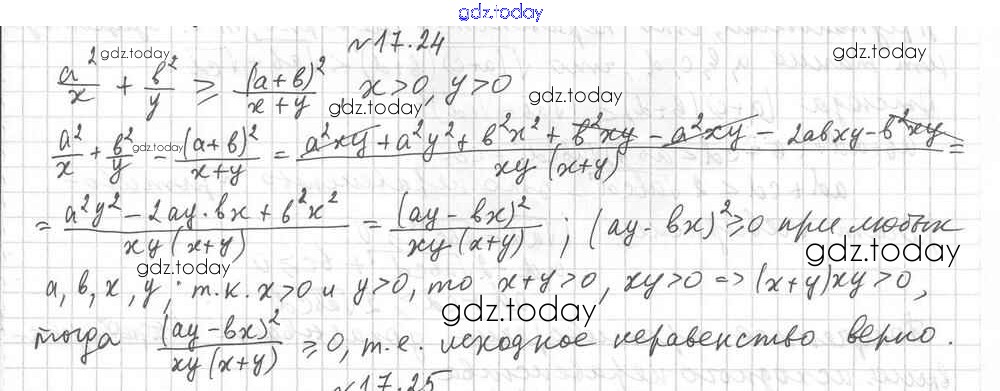 gdz.today
№17.24
a²/x + b²/y ⩾ (a+b)²/(x+y) x>0, y>0
gdz.today
gdz.today
gdz.today
a²/x + b²/y − (a+b)²/(x+y) = (a²xy + a²y² + b²x² + b²xy − a²xy − 2abxy − b²xy)/(xy(x+y)) =
gdz.today
gdz.today
= (a²y² − 2ay·bx + b²x²)/(xy(x+y)) = (ay − bx)²/(xy(x+y)) ; (ay − bx)² ⩾ 0 при любых
gdz.today
gdz.today
a, b, x, y; т.к. x>0 и y>0, то x+y>0, xy>0 => (x+y)xy>0,
gdz.today
тогда (ay−bx)²/(xy(x+y)) ⩾ 0, т.е. исходное неравенство верно.
№17.25